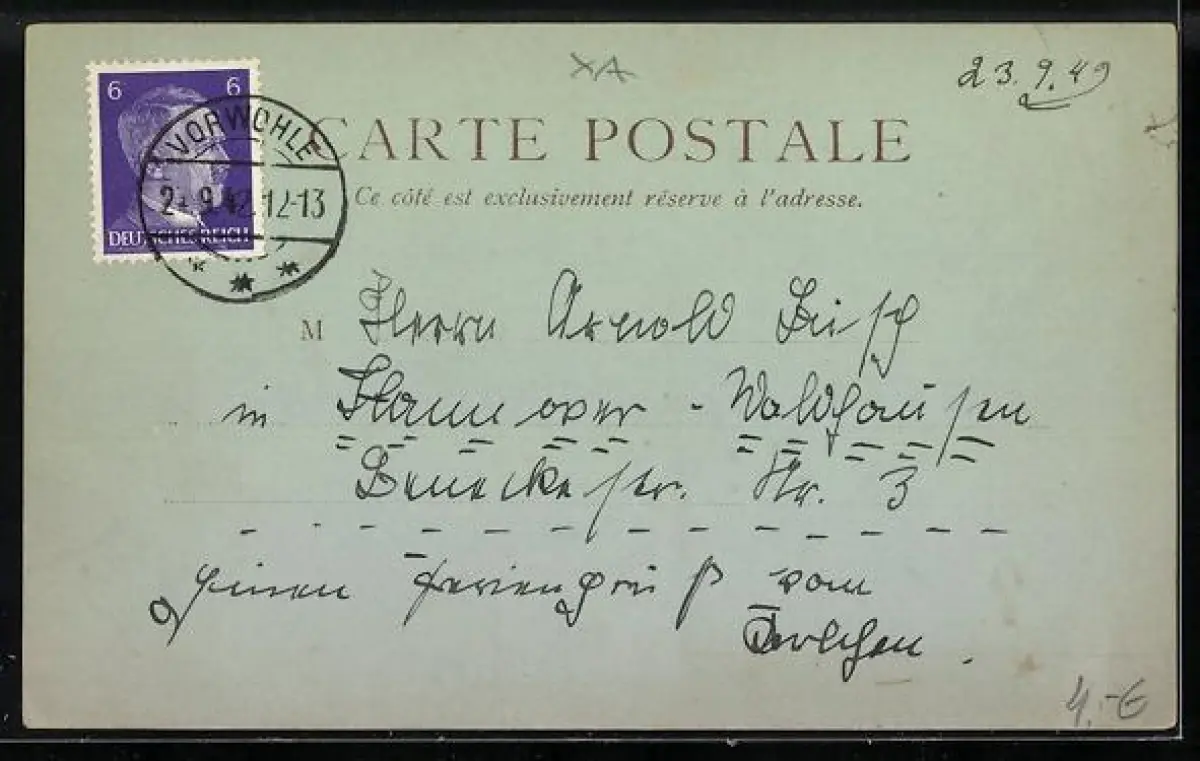 6 6
DEUTSCHES REICH
VORWOHLE
9.42.12-13
XA
23.9.49
CARTE POSTALE
Ce côté est exclusivement réservé à l'adresse.
M Herrn Arnold
in Hannover - Waldhausen
Beneckestr. Nr. 3
Feriengruß vom
4.-€